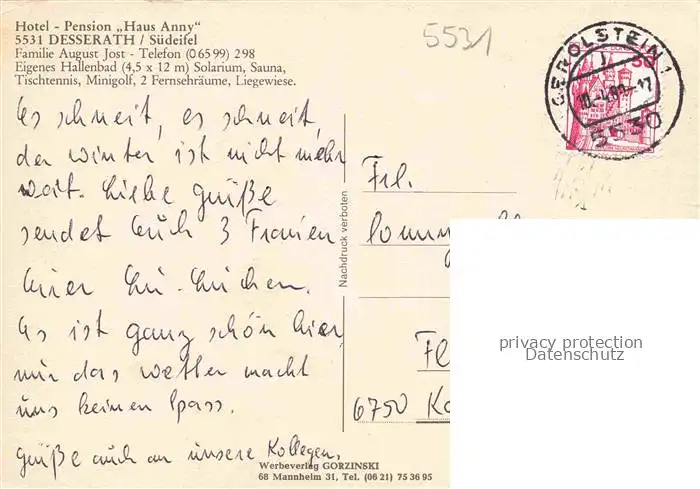 Hotel - Pension „Haus Anny"
5531 DESSERATH / Südeifel
Familie August Jost - Telefon (0 65 99) 2 98
Eigenes Hallenbad (4,5 x 12 m) Solarium, Sauna,
Tischtennis, Minigolf, 2 Fernsehräume, Liegewiese.
5531
GEROLSTEIN 1
5530
50
Es schneit, es schneit,
der winter ist nicht mehr
weit. Liebe Grüße
sendet Euch 3 Frauen
Es ist ganz schön hier,
nur das wetter macht
uns keinen Spass.
Grüße auch an unsere Kollegen,
Nachdruck verboten
Frl.
6750
privacy protection
Datenschutz
Werbeverlag GORZINSKI
68 Mannheim 31, Tel. (06 21) 75 36 95